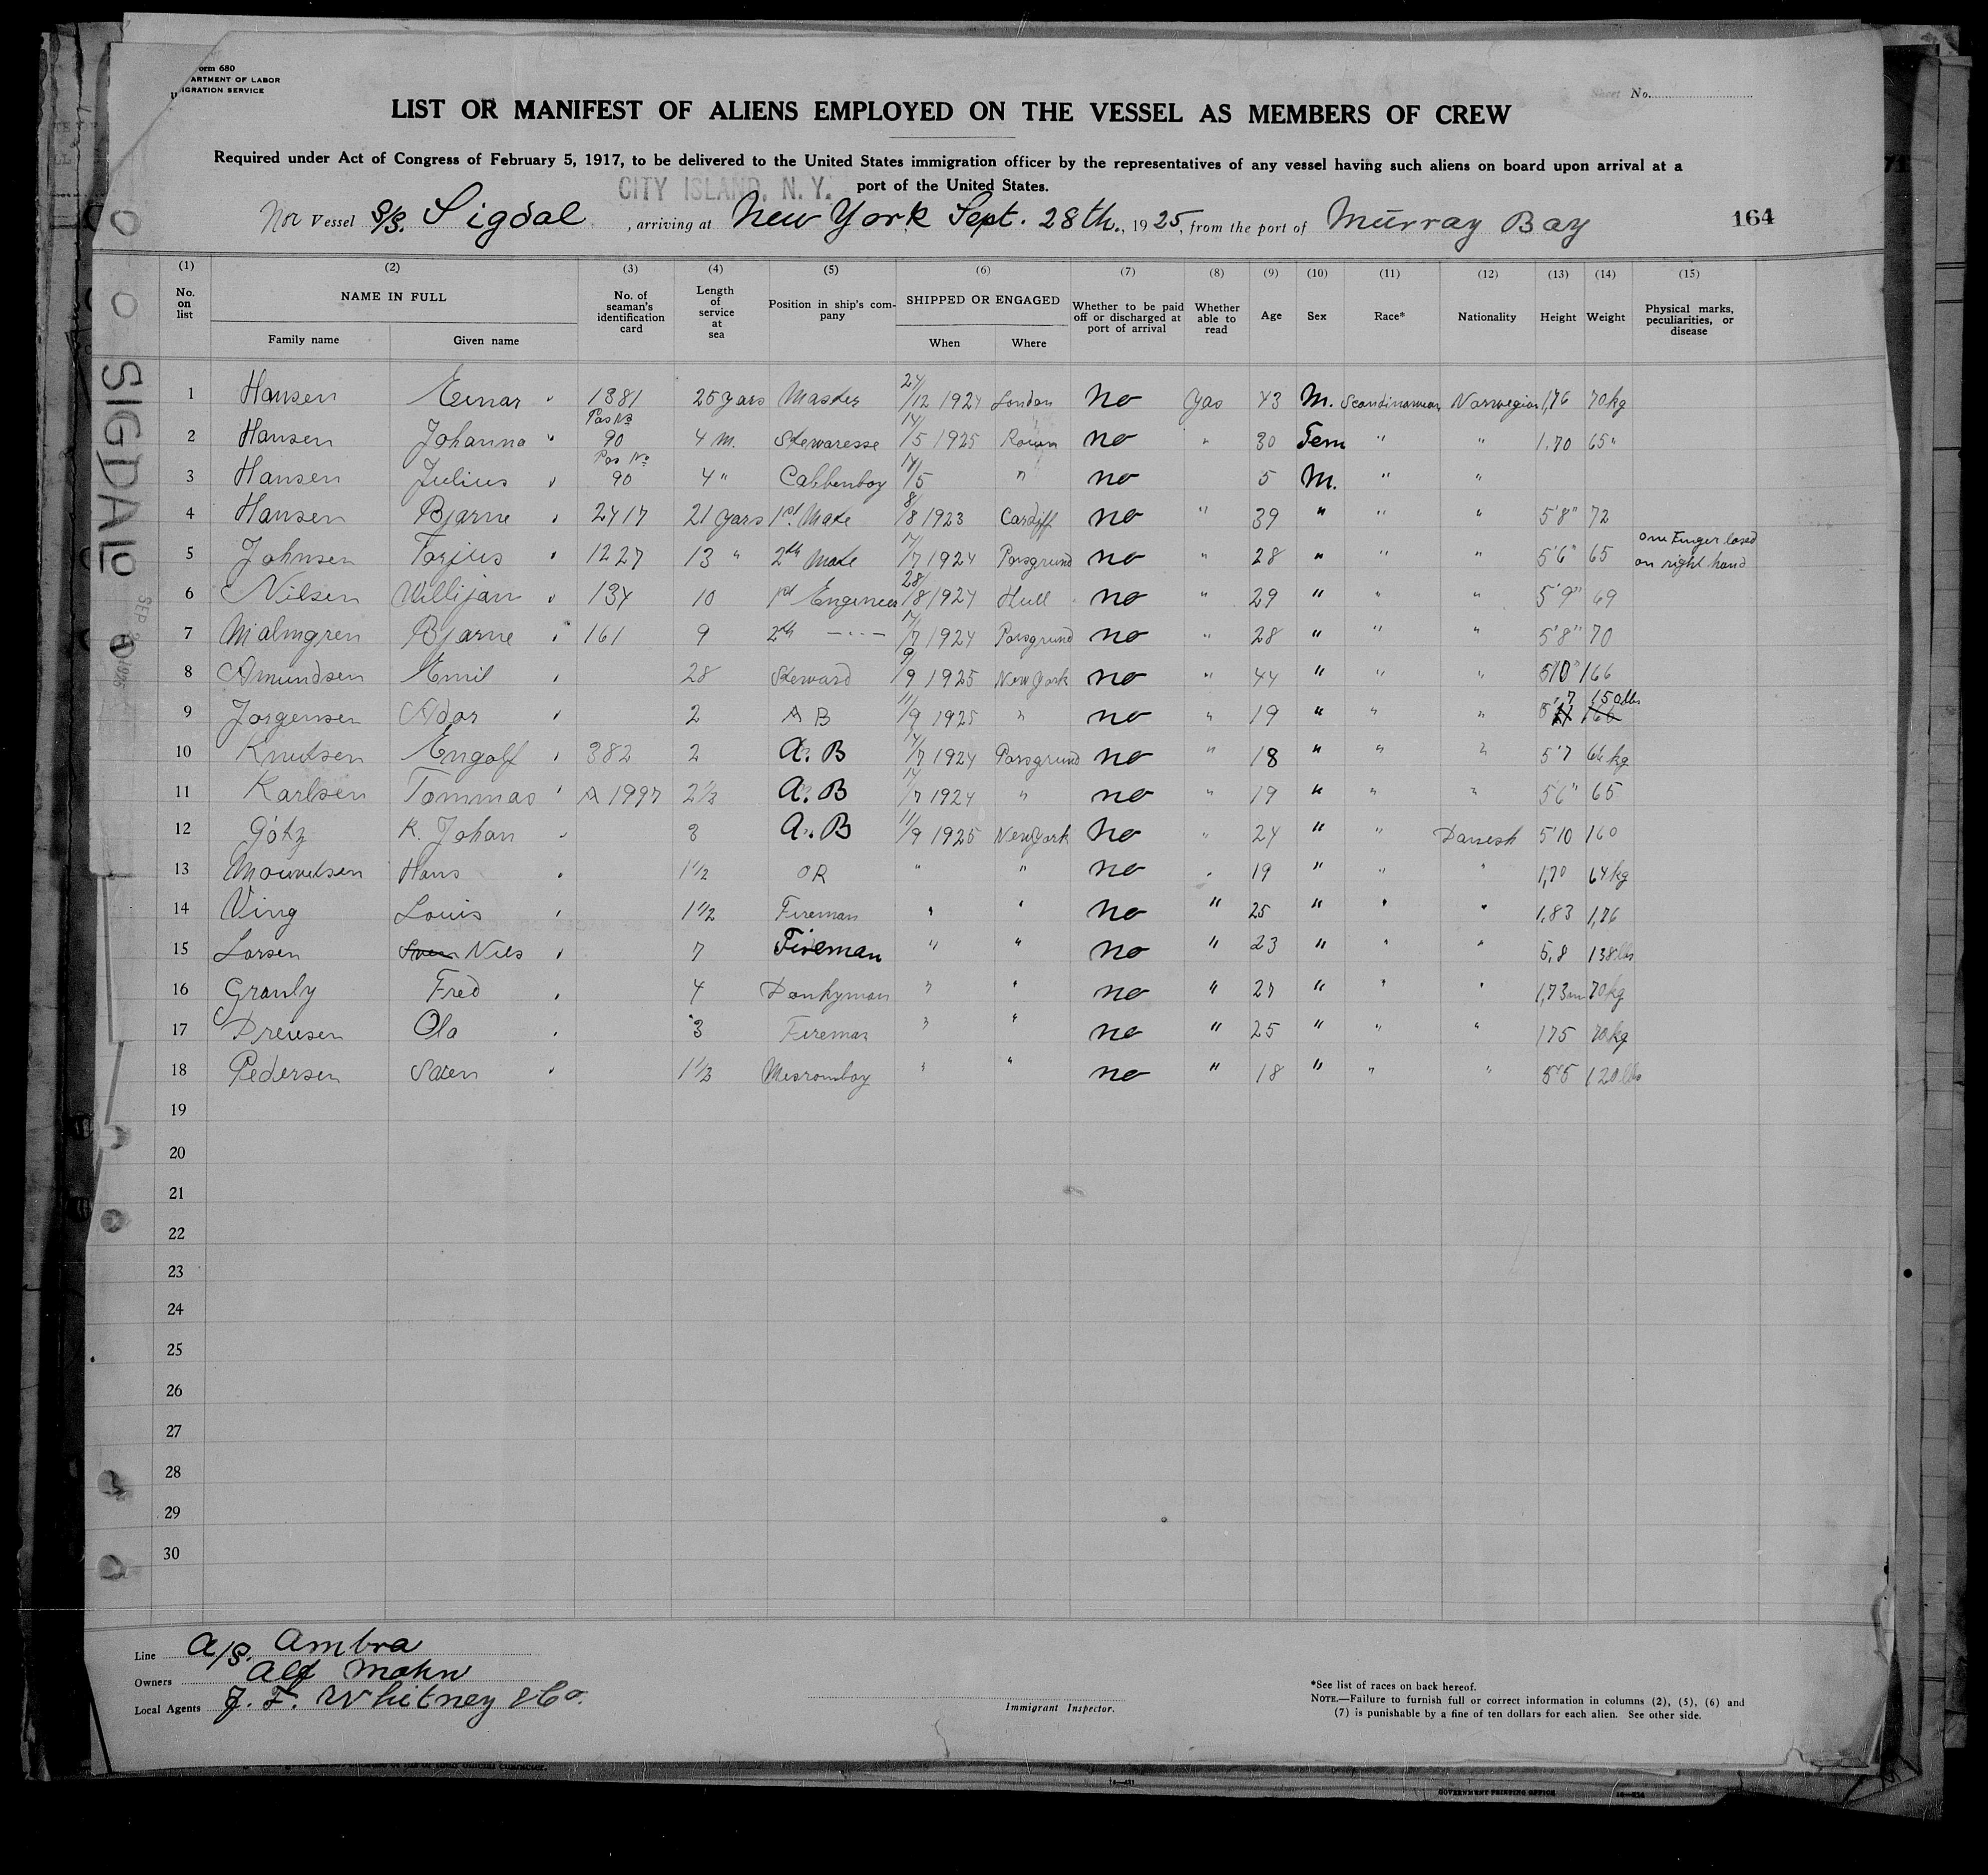 orm 680
ARTMENT OF LABOR
IGRATION SERVICE
Sheet No.
LIST OR MANIFEST OF ALIENS EMPLOYED ON THE VESSEL AS MEMBERS OF CREW
Required under Act of Congress of February 5, 1917, to be delivered to the United States immigration officer by the representatives of any vessel having such aliens on board upon arrival at a
port of the United States.
CITY ISLAND, N. Y.
Nor Vessel S/S. Sigdal, arriving at New York Sept. 28th., 1925, from the port of Murray Bay
164
(1) (2) (3) (4) (5) (6) (7) (8) (9) (10) (11) (12) (13) (14) (15)
No. on list NAME IN FULL Family name Given name No. of seaman's identification card Length of service at sea Position in ship's company SHIPPED OR ENGAGED When Where Whether to be paid off or discharged at port of arrival Whether able to read Age Sex Race* Nationality Height Weight Physical marks, peculiarities, or disease
1 Hansen Einar 1381 25 years Master 24/12 1924 London No Yas 43 M. Scandinavian Norwegian 1,76 70 kg
2 Hansen Johanna Pas No 90 4 M. Stewaresse 14/5 1925 Rouen no " 30 Fem " " 1.70 65 "
3 Hansen Julius Pas No 90 4 " Cabbenboy 14/5 " no 5 M. " "
4 Hansen Bjarne 2417 21 years 1st Mate 8/8 1923 Cardiff no " 39 " " " 5'8" 72
5 Johnsen Torjus 1227 13 " 2th Mate 14/7 1924 Porsgrund no " 28 " " " 5'6" 65 one Finger losed on right hand
6 Nilsen Willijam 134 10 1st Engineer 28/8 1924 Hull no " 29 " " " 5'9" 69
7 Malmgren Bjarne 161 9 2th -"- 14/7 1924 Porsgrund no " 28 " " " 5'8" 70
8 Amundsen Emil 28 Steward 9/9 1925 New York no " 44 " " " 5'10" 166
9 Jorgensen Ador 2 A B 11/9 1925 " no " 19 " " " 5'7 150 lbs
10 Knutsen Engolf 382 2 A. B 14/7 1924 Porsgrund no " 18 " " " 5'7 66 kg
11 Karlsen Tommas A 1997 2 1/3 A. B 14/7 1924 " no " 19 " " " 5'6" 65
12 Götz K. Johan 3 A. B 11/9 1925 New York No " 24 " " Danish 5'10 160
13 Hans 1 1/2 OR " " no " 19 " " " 1,70 64 kg
14 Ving Louis 1 1/2 Fireman " " no " 25 " " " 1,83 1,76
15 Larsen Sven Nils 7 Fireman " " no " 23 " " " 5,8 138 lbs
16 Granly Fred 4 Donkyman " " no " 27 " " " 1,73 m 70 kg
17 Preusen Ola 3 Fireman " " no " 25 " " " 175 70 kg
18 Pedersen Sven 1 1/3 Messromboy " " no " 18 " " " 5'5 120 lbs
19
20
21
22
23
24
25
26
27
28
29
30
SIGDAL
Line A/S. Ambra
Owners Alf Mohn
Local Agents J. F. Whitney & Co.
Immigrant Inspector.
*See list of races on back hereof.
NOTE.—Failure to furnish full or correct information in columns (2), (5), (6) and
(7) is punishable by a fine of ten dollars for each alien. See other side.
GOVERNMENT PRINTING OFFICE